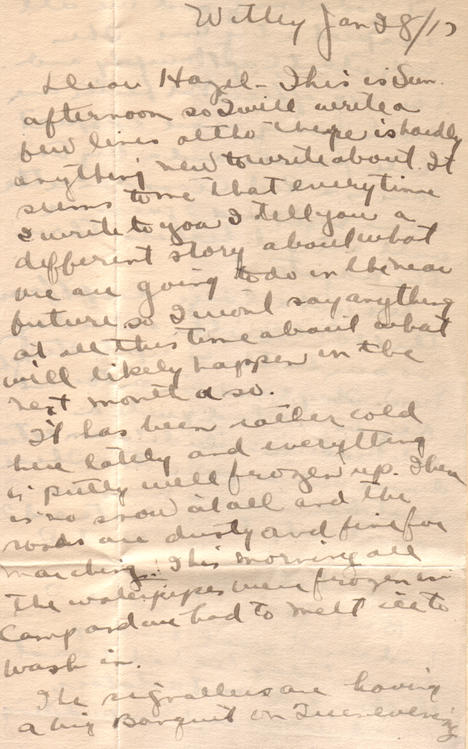 Witley Jan 28/17
Dear Hazel - This is Sun.
afternoon so I will write a
few lines altho there is hardly
anything new to write about. It
seems to me that everytime
I write to you I tell you a
different story about what
we are going to do in the near
future so I won't say anything
at all this time about what
will likely happen in the
next month or so.
It has been rather cold
here lately and everything
is pretty well frozen up. There
is no snow at all and the
roads are dusty and fine for
marching. This morning all
the waterpipes were frozen in
Camp and we had to melt ice to
wash in.
The signallers are having
a big Banquet on Tues evening